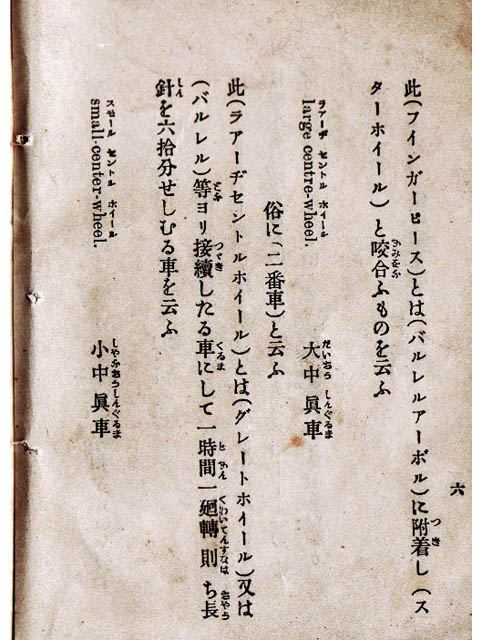 六
此(フインガーピース)とは(バルレルアーボル)に附着し(ス
ターホイール)と咬合ふものを云ふ
large centre-wheel. 大中眞車
ラアーヂ セントル ホイール だいちう しんぐるま
俗に(二番車)と云ふ
此(ラアーヂセントルホイール)とは(グレートホイール)又は
(バルレル)等ヨリ接續したる車にして一時間一廻轉則ち長
針を六拾分せしむる車を云ふ
small-center-wheel. 小中眞車
スモール セントル ホイール しやふちうしんぐるま